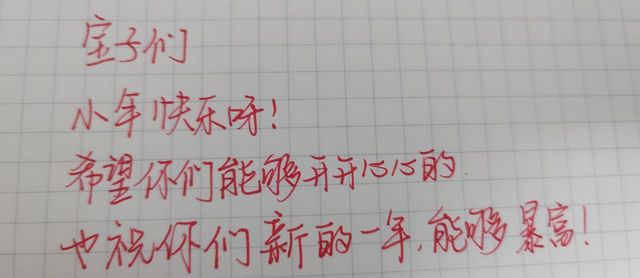 宝子们
小年快乐呀!
希望你们能够开开心心的.
也祝你们新的一年,能够暴富!